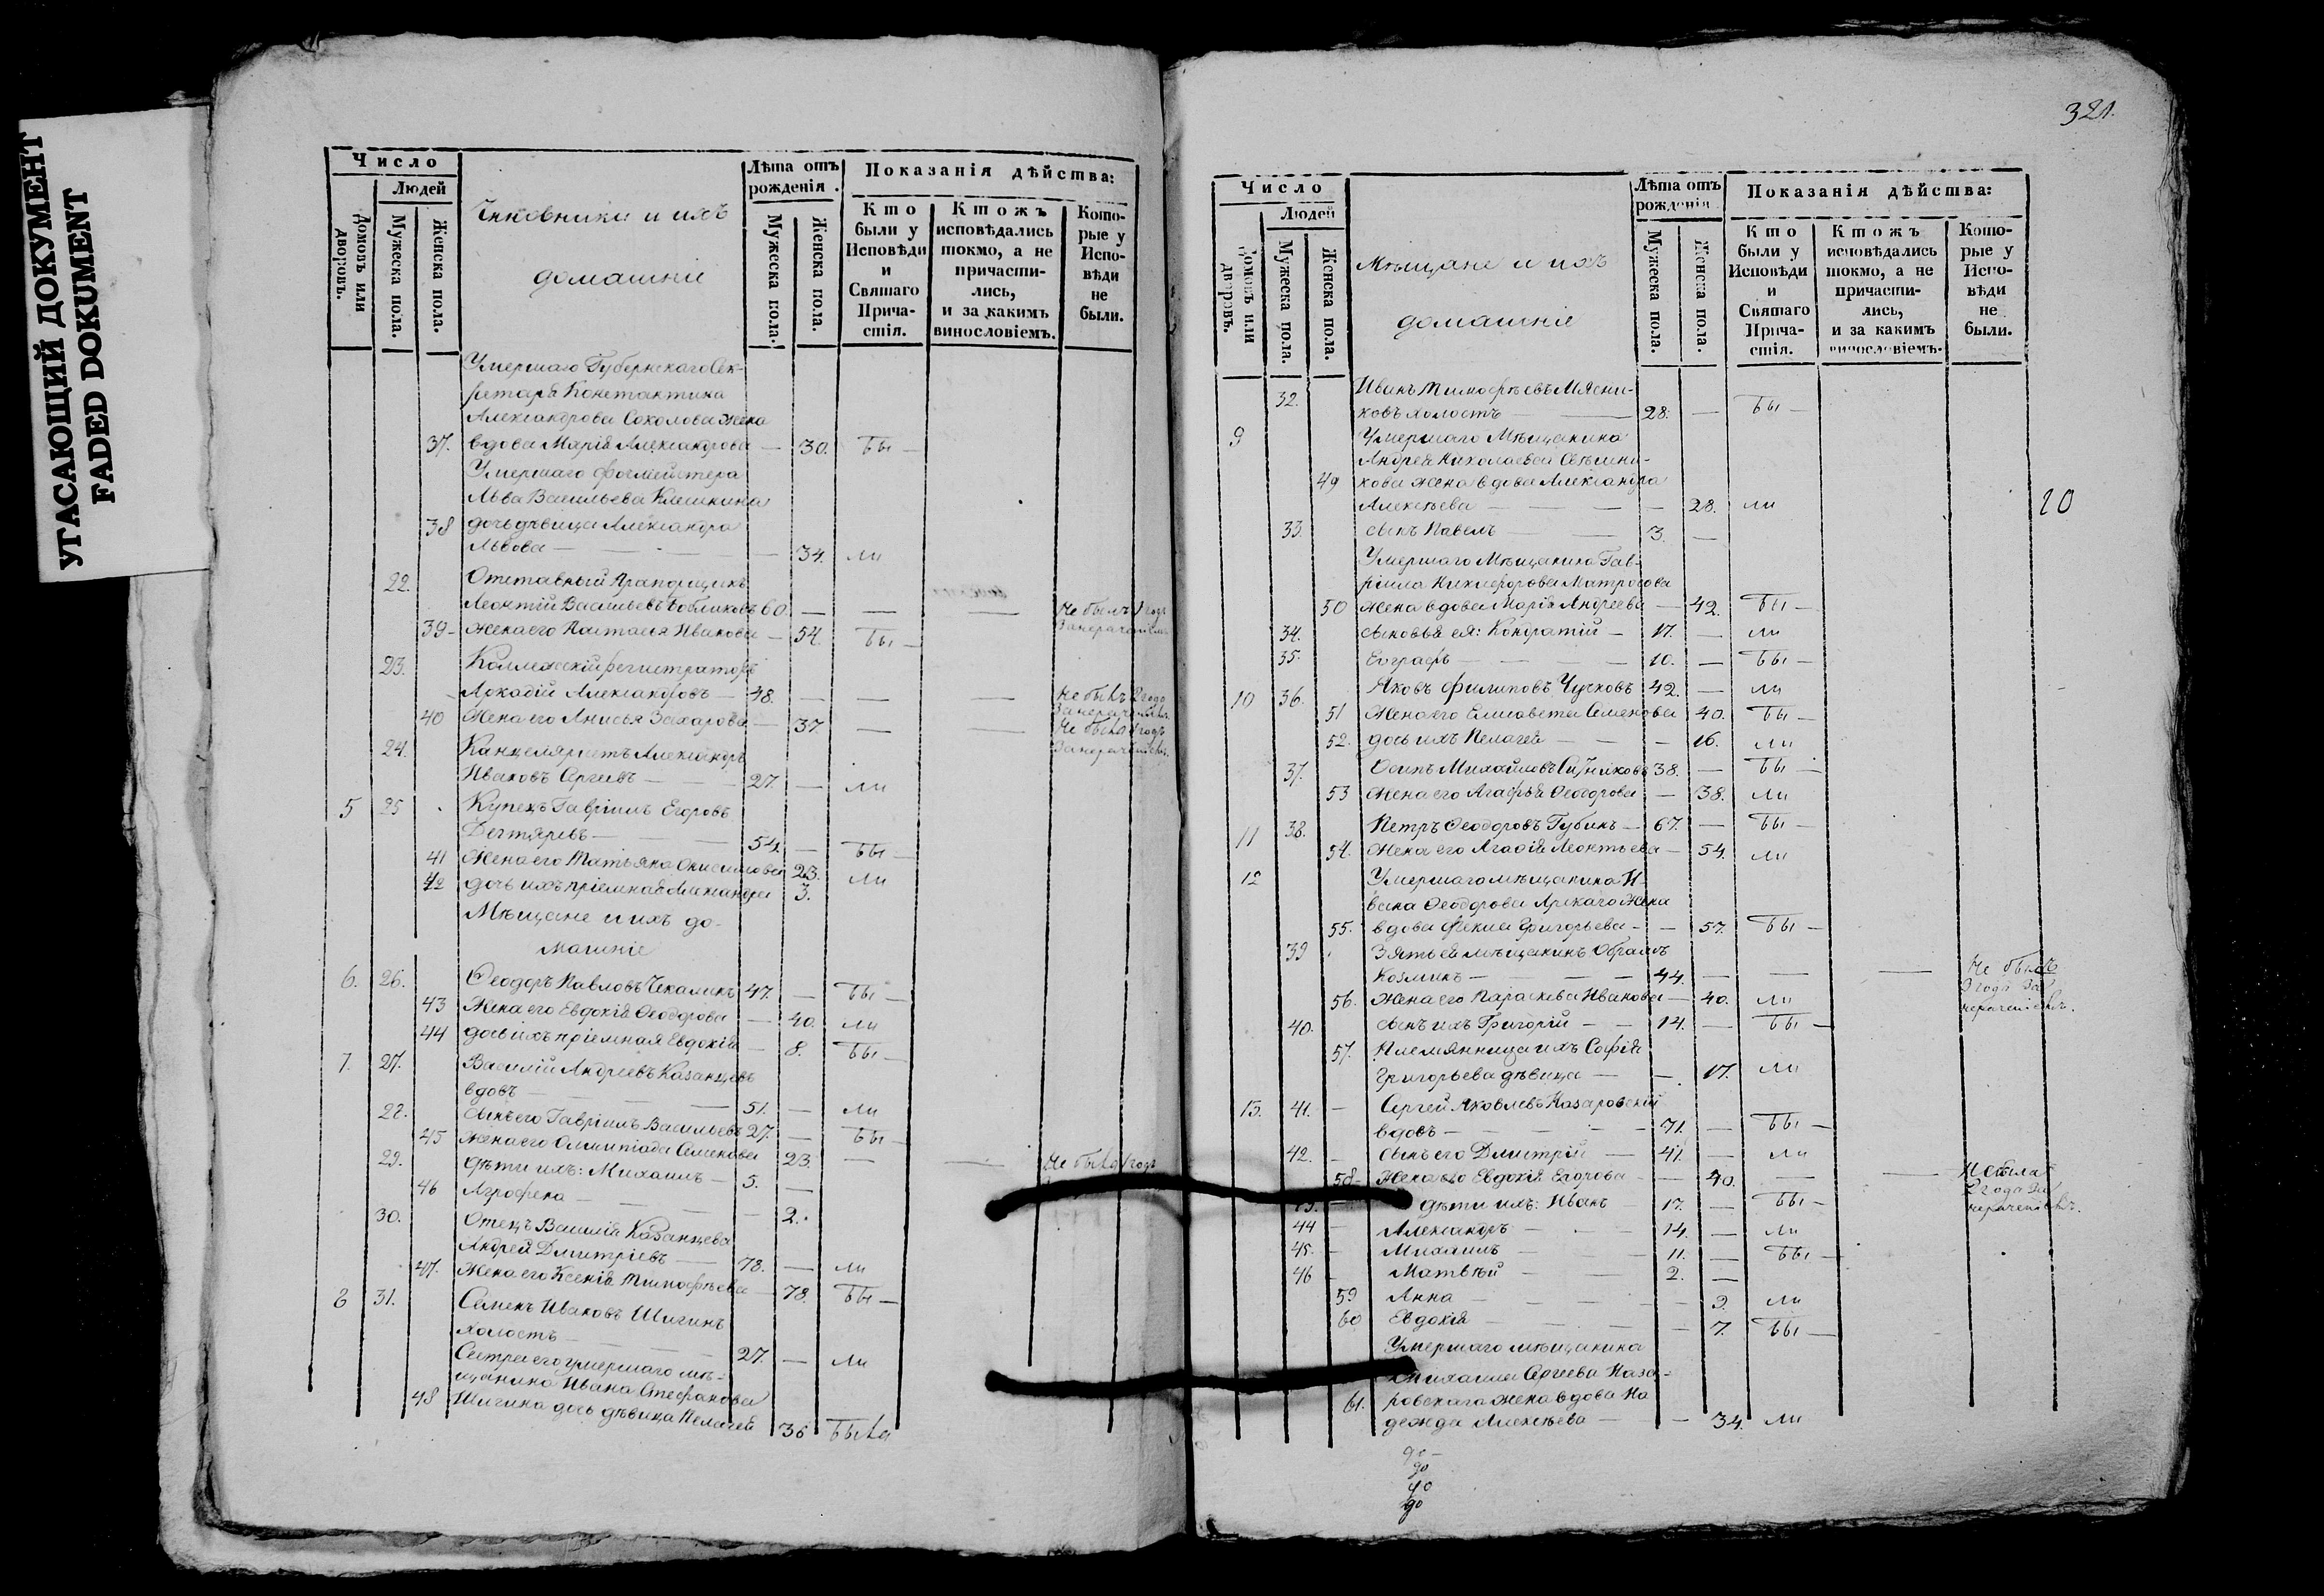 УГАСАЮЩИЙ ДОКУМЕНТ
FADED DOKUMENT
Число
Людей
Домовъ или дворовъ.
Мужеска пола.
Женска пола.
Чиновники и ихъ
домашніе
Лѣта отъ рожденія.
Мужеска пола.
Женска пола.
Показанія дѣйства:
Кто были у Исповѣди и Святаго Причастія.
Ктожъ исповѣдались токмо, а не причастились, и за какимъ винословіемъ.
Которые у Исповѣди не были.
Умершаго Губернскаго Сек-
ретаря Константина
Александрова Соколова жена
37. вдова Марія Александрова — 30. бы —
Умершаго
Льва Васильева
38 дочь дѣвица Александра
Львова — — 34. ли
22. Отставный Прапорщикъ
Леонтій Васильевъ 60 — — — Не былъ 1 годъ
39 — жена его Настасія Иванова — 54. бы — За нераченіемъ
23. Коллежскій регистраторъ
Аркадій Александровъ — 48. — — — Не былъ 2 года
40 Жена его Анисья Захарова — 37. — — За нераченіемъ.
24. Канцеляристъ Александръ
Ивановъ Сергеевъ — — 27. — ли
5 25 Купецъ Гавріилъ Егоровъ
Дегтяревъ — 54. — бы —
41 Жена его Татьяна Онисимова 23. ли
42 дочь ихъ пріемная Александра 3.
Мѣщане и ихъ до-
машніе
6. 26. Ѳеодоръ Павловъ Чекалинъ 47. — бы —
43 Жена его Евдокія Ѳеодорова — 40. ли
44 дочь ихъ пріемная Евдокія — 8. бы —
7. 27. Василій Андреевъ Казанцевъ
вдовъ — — 51. — ли
28. Сынъ его Гавріилъ Васильевъ 27. — бы —
45 Жена его Олимпіада Семенова 23. — — Не была 1 годъ
29. дѣти ихъ: Михаилъ — 5. —
46 Агрофена — — 2.
30. Отецъ Василія Казанцева
Андрей Дмитріевъ — 78. — ли
47. Жена его Ксенія Тимофѣева — 78. бы —
8 31. Семенъ Ивановъ Шигинъ
холостъ — 27. — ли
Сестра его умершаго мѣ-
щанина Ивана Стефанова
48 Шигина дочь дѣвица Пелагея 36 была
321.
20
Число
Людей
Домовъ или дворовъ.
Мужеска пола.
Женска пола.
Мѣщане и ихъ
домашніе
Лѣта отъ рожденія.
Мужеска пола.
Женска пола.
Показанія дѣйства:
Кто были у Исповѣди и Святаго Причастія.
Ктожъ исповѣдались токмо, а не причастились, и за какимъ винословіемъ.
Которые у Исповѣди не были.
32. Иванъ Тимофѣевъ Мясни-
ковъ холостъ — 28. — бы —
9 Умершаго Мѣщанина
Андрея Николаева Свѣшни-
49 кова жена вдова Александра
Алексѣева — — — 28. ли
33. сынъ Павелъ — 3. —
Умершаго Мѣщанина Гав-
ріила Никифорова Матросова
50 жена вдова Марія Андреева — 42. бы —
34. сыновья ея: Кондратій — 17. — ли
35. Евграфъ — — — 10. — бы —
10 36. Яковъ Филиповъ Чучковъ 42. — ли
51 Жена его Елисавета Семенова 40. бы —
52. дочь ихъ Пелагея — — 16. ли
37. Осипъ Михайловъ Ситниковъ 38. — бы —
53 жена его Агафья Ѳеодорова — 38. ли
11 38. Петръ Ѳеодоровъ Губинъ — 67. — бы —
54. Жена его Агафія Леонтьева — 54. ли
12 Умершаго мѣщанина И-
вана Ѳеодорова жена
55. вдова Фекла Григорьева — — 57. бы —
39 Зять ея мѣщанинъ
— — 44. — — — Не былъ
56. Жена его Параскева Иванова — 40. ли 3 года за нераченіемъ.
40. сынъ ихъ Григорій — — 14. — бы —
57. Племянница ихъ Софія
Григорьева дѣвица — — 17. ли
13. 41. — Сергей Яковлевъ Назаровскій
вдовъ — — — 71. — бы —
42. — сынъ его Дмитрій — 41. — ли
58 — Жена его Евдокія Егорова — — 40. — — Не была
дѣти ихъ: Иванъ — 17. — бы — 2 года за нераченіемъ.
44 — Александръ — — 14. — ли
45. — Михаилъ — — 11. — бы —
46 — Матвѣй — — 2. —
59 Анна — — — 9. ли
60 Евдокія — — — 7. бы —
Умершаго мѣщанина
Михаила Сергеева Наза-
61. ровскаго жена вдова На
дежда Алексѣева — — 34. ли
до —
до
до
до